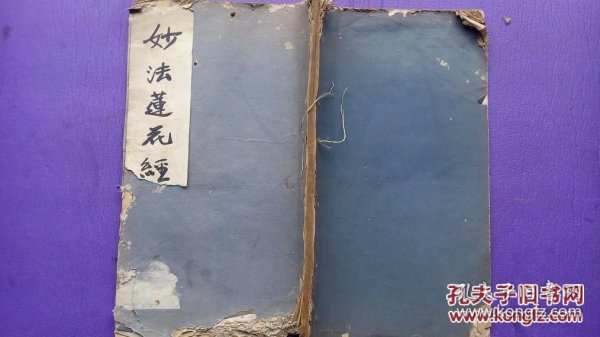 妙法蓮花經
孔夫子旧书网
www.kongfz.com